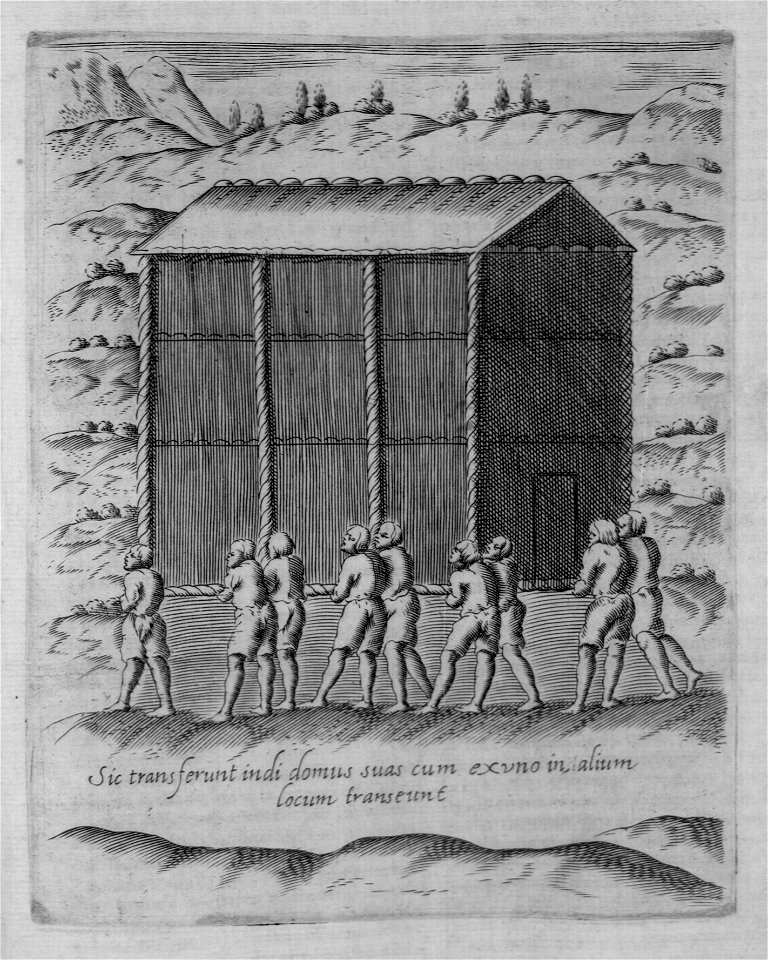 Sic transferunt indi domus suas cum ex vno in alium
locum transeunt